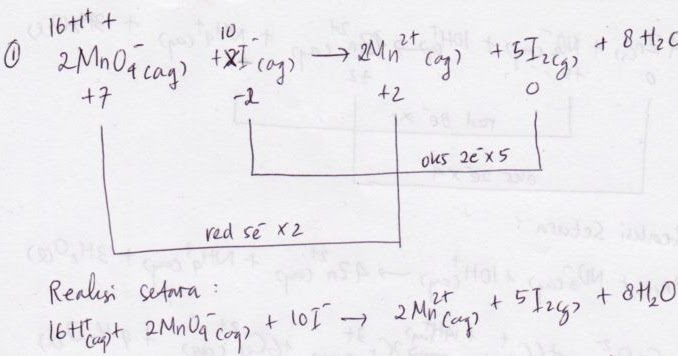 16H⁺ + 10
① 2MnO₄⁻(aq) + 2I⁻(aq) → 2Mn²⁺(aq) + 5I₂(g) + 8H₂O
+7 -2 +2 0
oks 2e⁻ × 5
red 5e⁻ × 2
Reaksi setara :
16H⁺(aq) + 2MnO₄⁻(aq) + 10I⁻ → 2Mn²⁺(aq) + 5I₂(g) + 8H₂O